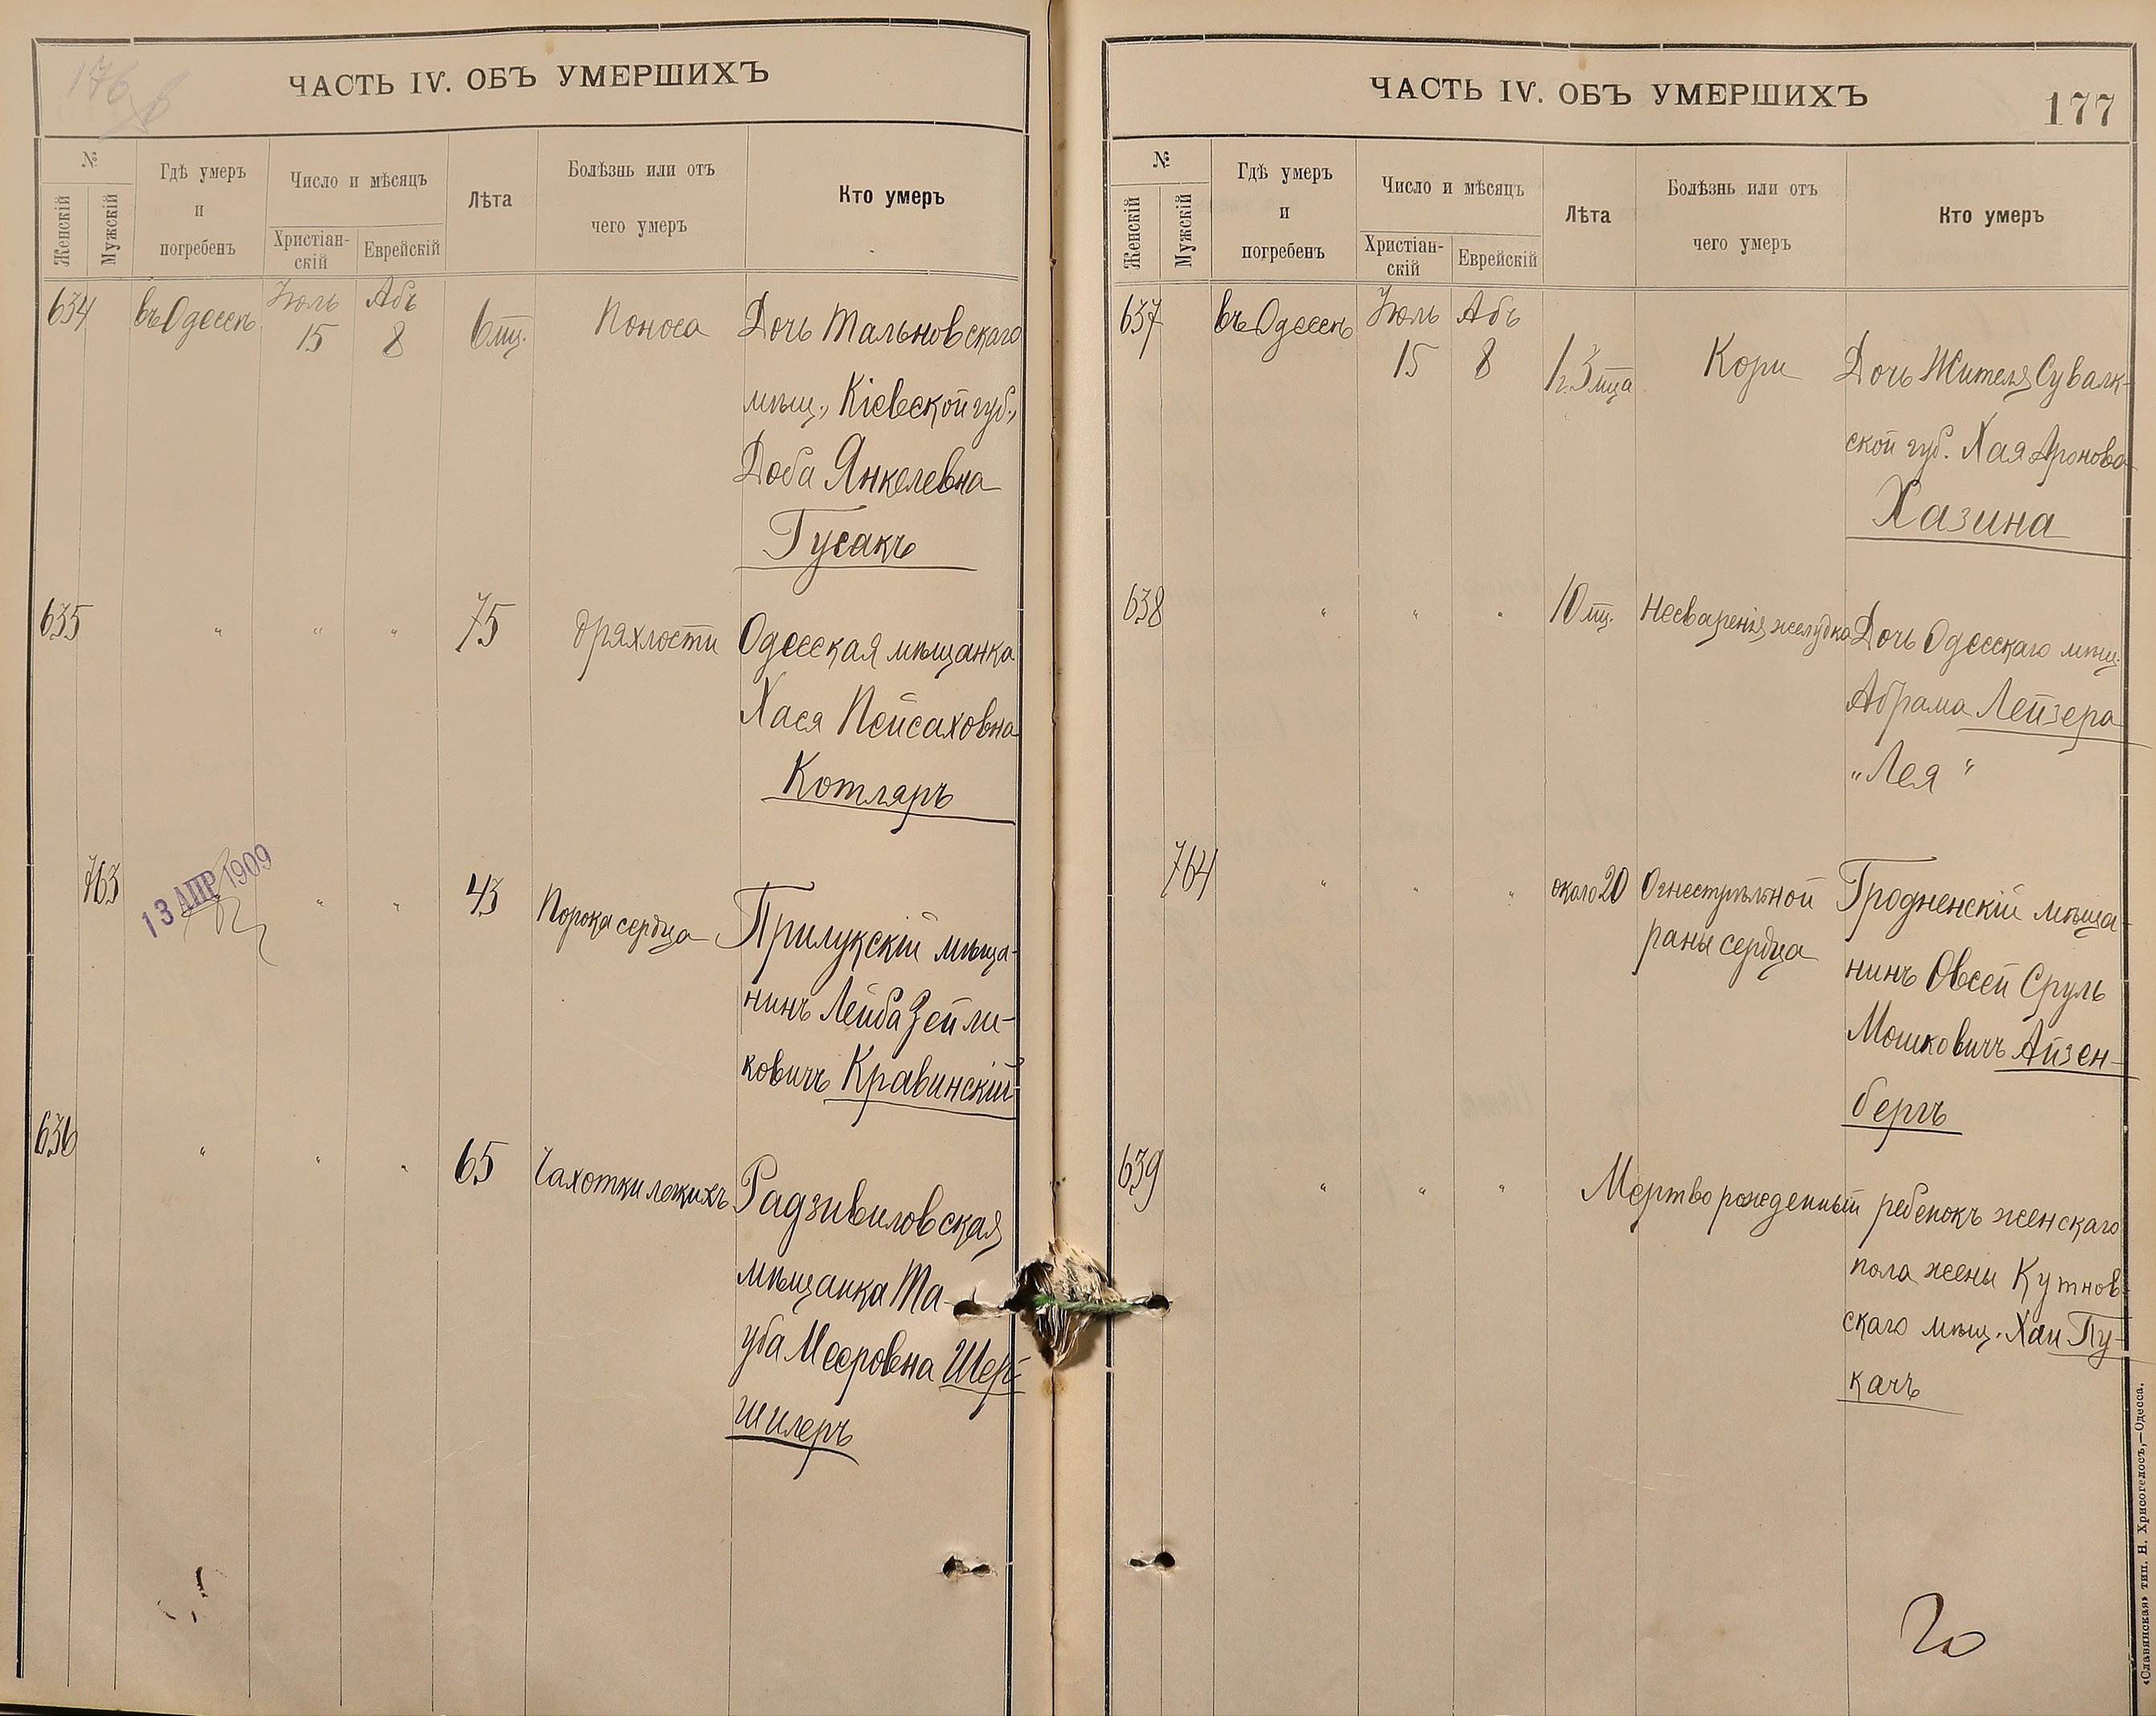 176 в
ЧАСТЬ IV. ОБЪ УМЕРШИХЪ
№
Женскій
Мужскій
Гдѣ умеръ
и
погребенъ
Число и мѣсяцъ
Христіан-
скій
Еврейскій
Лѣта
Болѣзнь или отъ
чего умеръ
Кто умеръ
634 въ Одессѣ Іюль Абъ
15 8 6 мц. Поноса Дочь Тальновскаго
мѣщ., Кіевской губ.,
Доба Янкелевна
Гусакъ
635 " " " 75 дряхлости Одесская мѣщанка
Хася Пейсаховна
Котляръ
763 13 АПР 1909 " " 43 Порока сердца Прилукскій мѣща-
нинъ Лейба Зейли-
ковичъ Кравинскій
636 " " " 65 Чахотки легкихъ Радзивиловская
мѣщанка Та-
уба Мееровна Шер-
шилеръ
ЧАСТЬ IV. ОБЪ УМЕРШИХЪ
177
№
Женскій
Мужскій
Гдѣ умеръ
и
погребенъ
Число и мѣсяцъ
Христіан-
скій
Еврейскій
Лѣта
Болѣзнь или отъ
чего умеръ
Кто умеръ
637 въ Одессѣ Іюль Абъ
15 8 1 г. 3 мца Кори Дочь Жителя Сувалк-
ской губ. Хая Аронова
Хазина
638 " " " 10 мц. Несваренія желудка Дочь Одесскаго мѣщ.
Абрама Лейзера
"Лея"
764 " " " около 20 Огнестрѣльной Гродненскій мѣща-
раны сердца
нинъ Овсей Сруль
Мошковичъ Айзен-
бергъ
639 " " " Мертворожденный ребенокъ женскаго
пола жены Кутнов-
скаго мѣщ. Хаи Пу-
качъ
20
«Славянская» тип. Н. Хрисогелосъ,—Одесса.